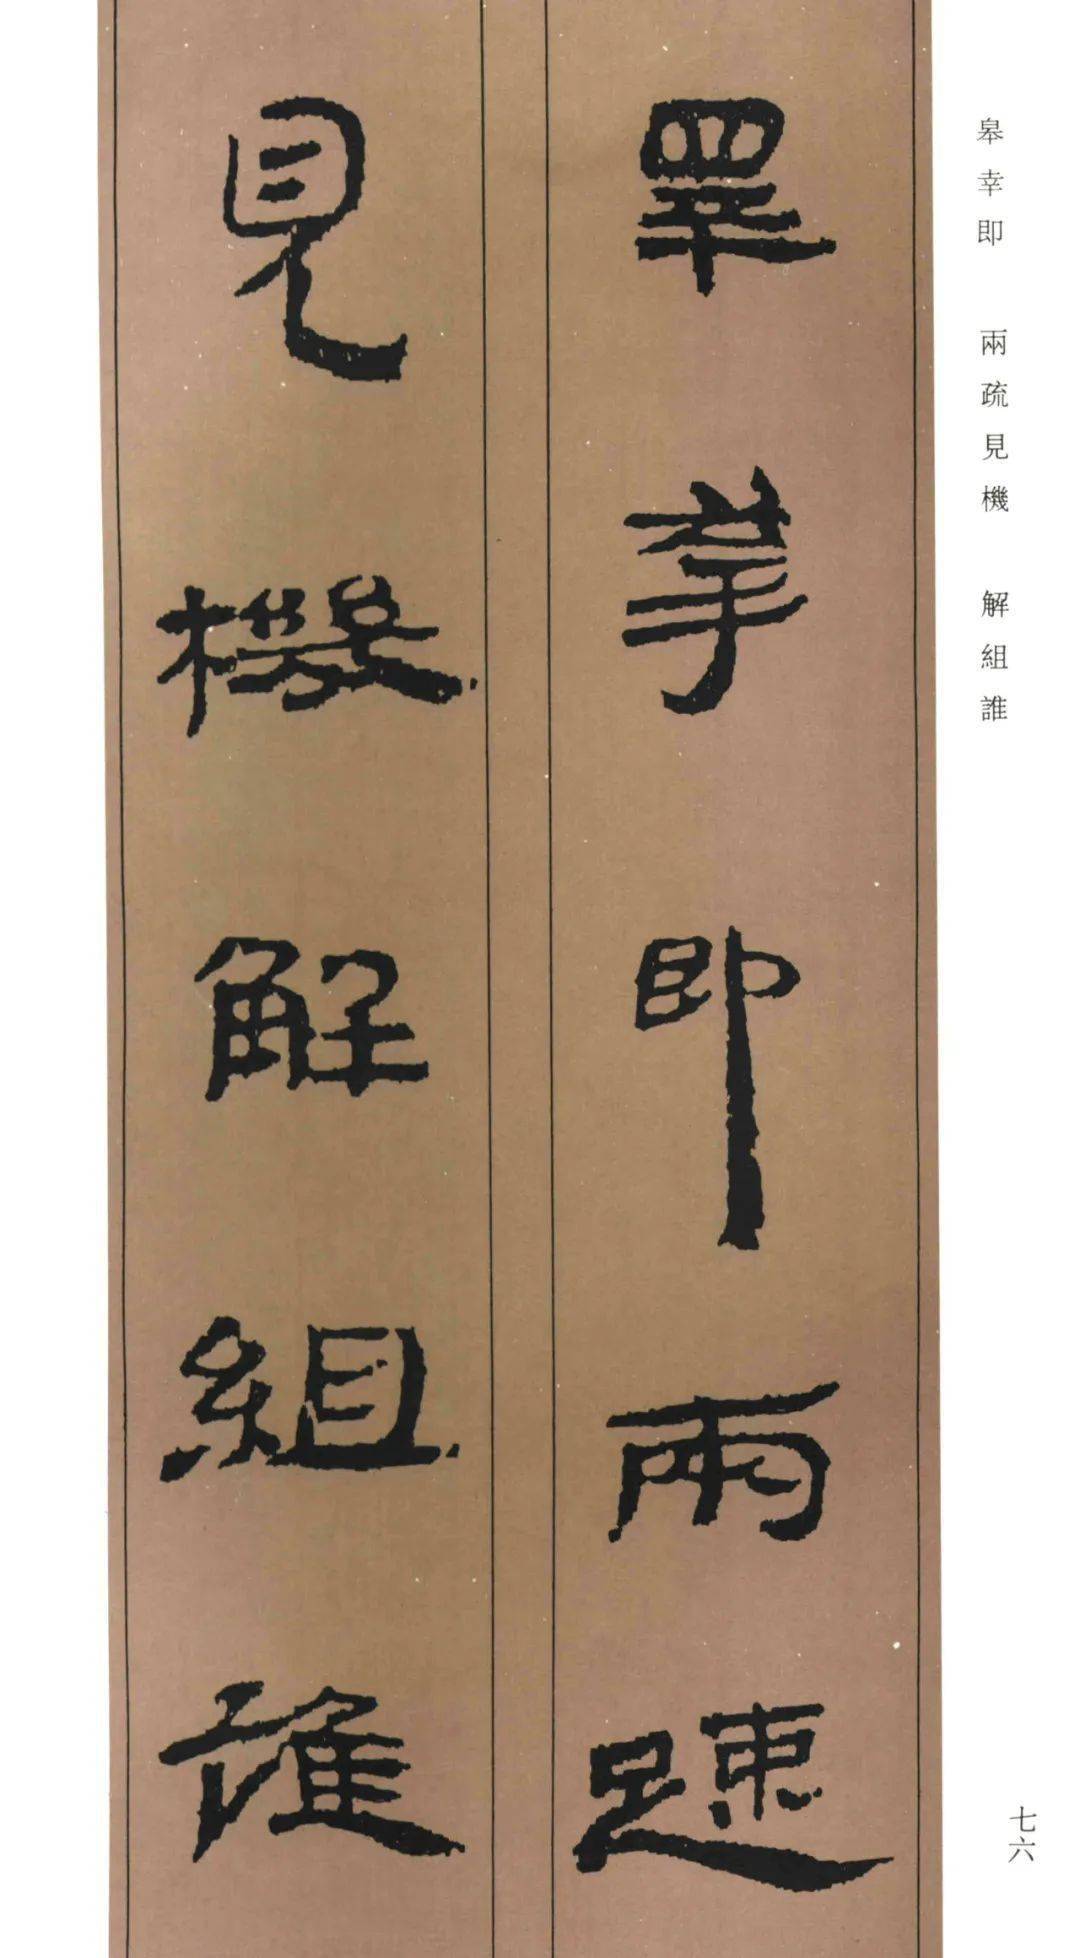 皋幸即　兩疏見機　解組誰
七六
睪幸即兩踈
見機解組誰